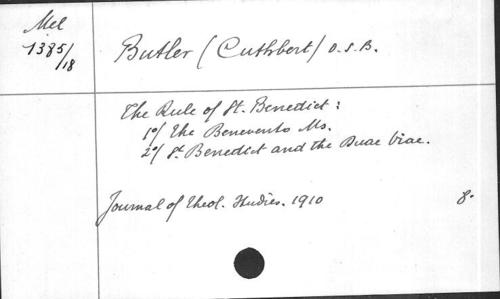 Mel
1385/18
Butler (Cuthbert) O.S.B.
The Rule of St. Benedict :
1º/ the Benevento Ms.
2º/ St Benedict and the Duae Viae.
Journal of theol. Studies. 1910 8º